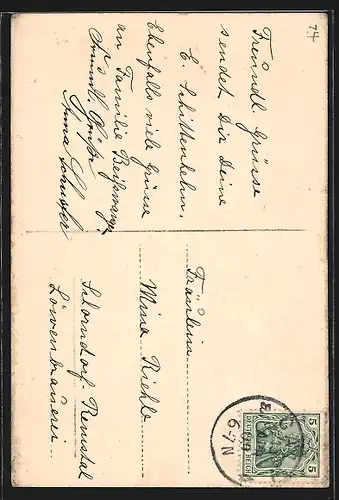 74
Freundl. Grüsse
sendet Dir Deine
E. Schittenhelm,
Ebenfalls viele Grüsse
an Familie Beisswanger
Freundl. Grüsse
Anna Schusler
Fräulein
Mina Riehle
Schorndorf Remstal
Löwenbrauerei
5 5
DEUTSCHES REICH
6-7N